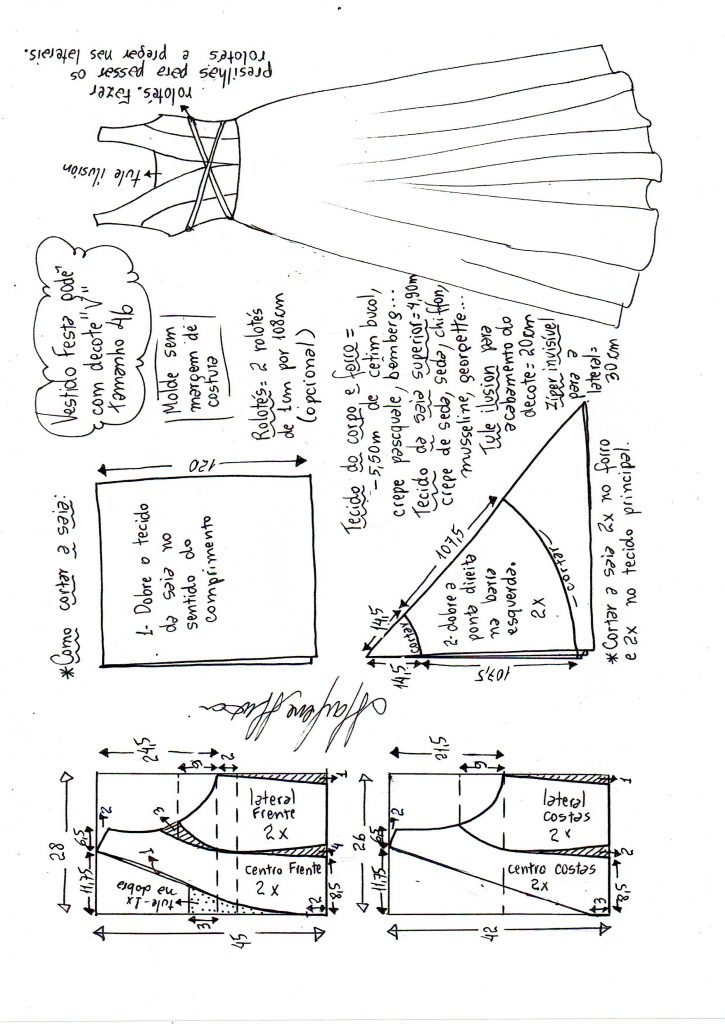 Vestido Festa godê
com decote "V"
Tamanho 46
Molde sem
margem de
costura
Rolotês= 2 rolotês
de 1cm por 108cm
(opcional)
rolotês. Fazer
presilhas para passar os
rolotês e pregar nas laterais.
tule ilusion
Tecido do corpo e forro=
-5,50m de cetim bucol,
crepe pascquale, bemberg...
Tecido da saia superior=4,90m
crepe de seda, seda, chiffon,
musseline, georgette...
Tule ilusion para
acabamento do
decote=20cm
Ziper invisível
para a
lateral=
30cm
*Como cortar a saia:
120
1- Dobre o tecido
da saia no
sentido do
comprimento
14,5
107,5
cortar
2-dobre a
ponta direita
na barra
esquerda.
2x
cortar
14,5
107,5
*Cortar a saia 2x no forro
e 2x no tecido principal.
Marlene Mukai
28
11,75
6,5
2
24,5
9
2
3
lateral
Frente
2x
1
1
4
centro Frente
2x
8,5
tule-1x
na dobra
3
2
45
26
11,75
6,5
2
21,5
9
lateral
costas
2x
1
2
centro costas
2x
8,5
3
42